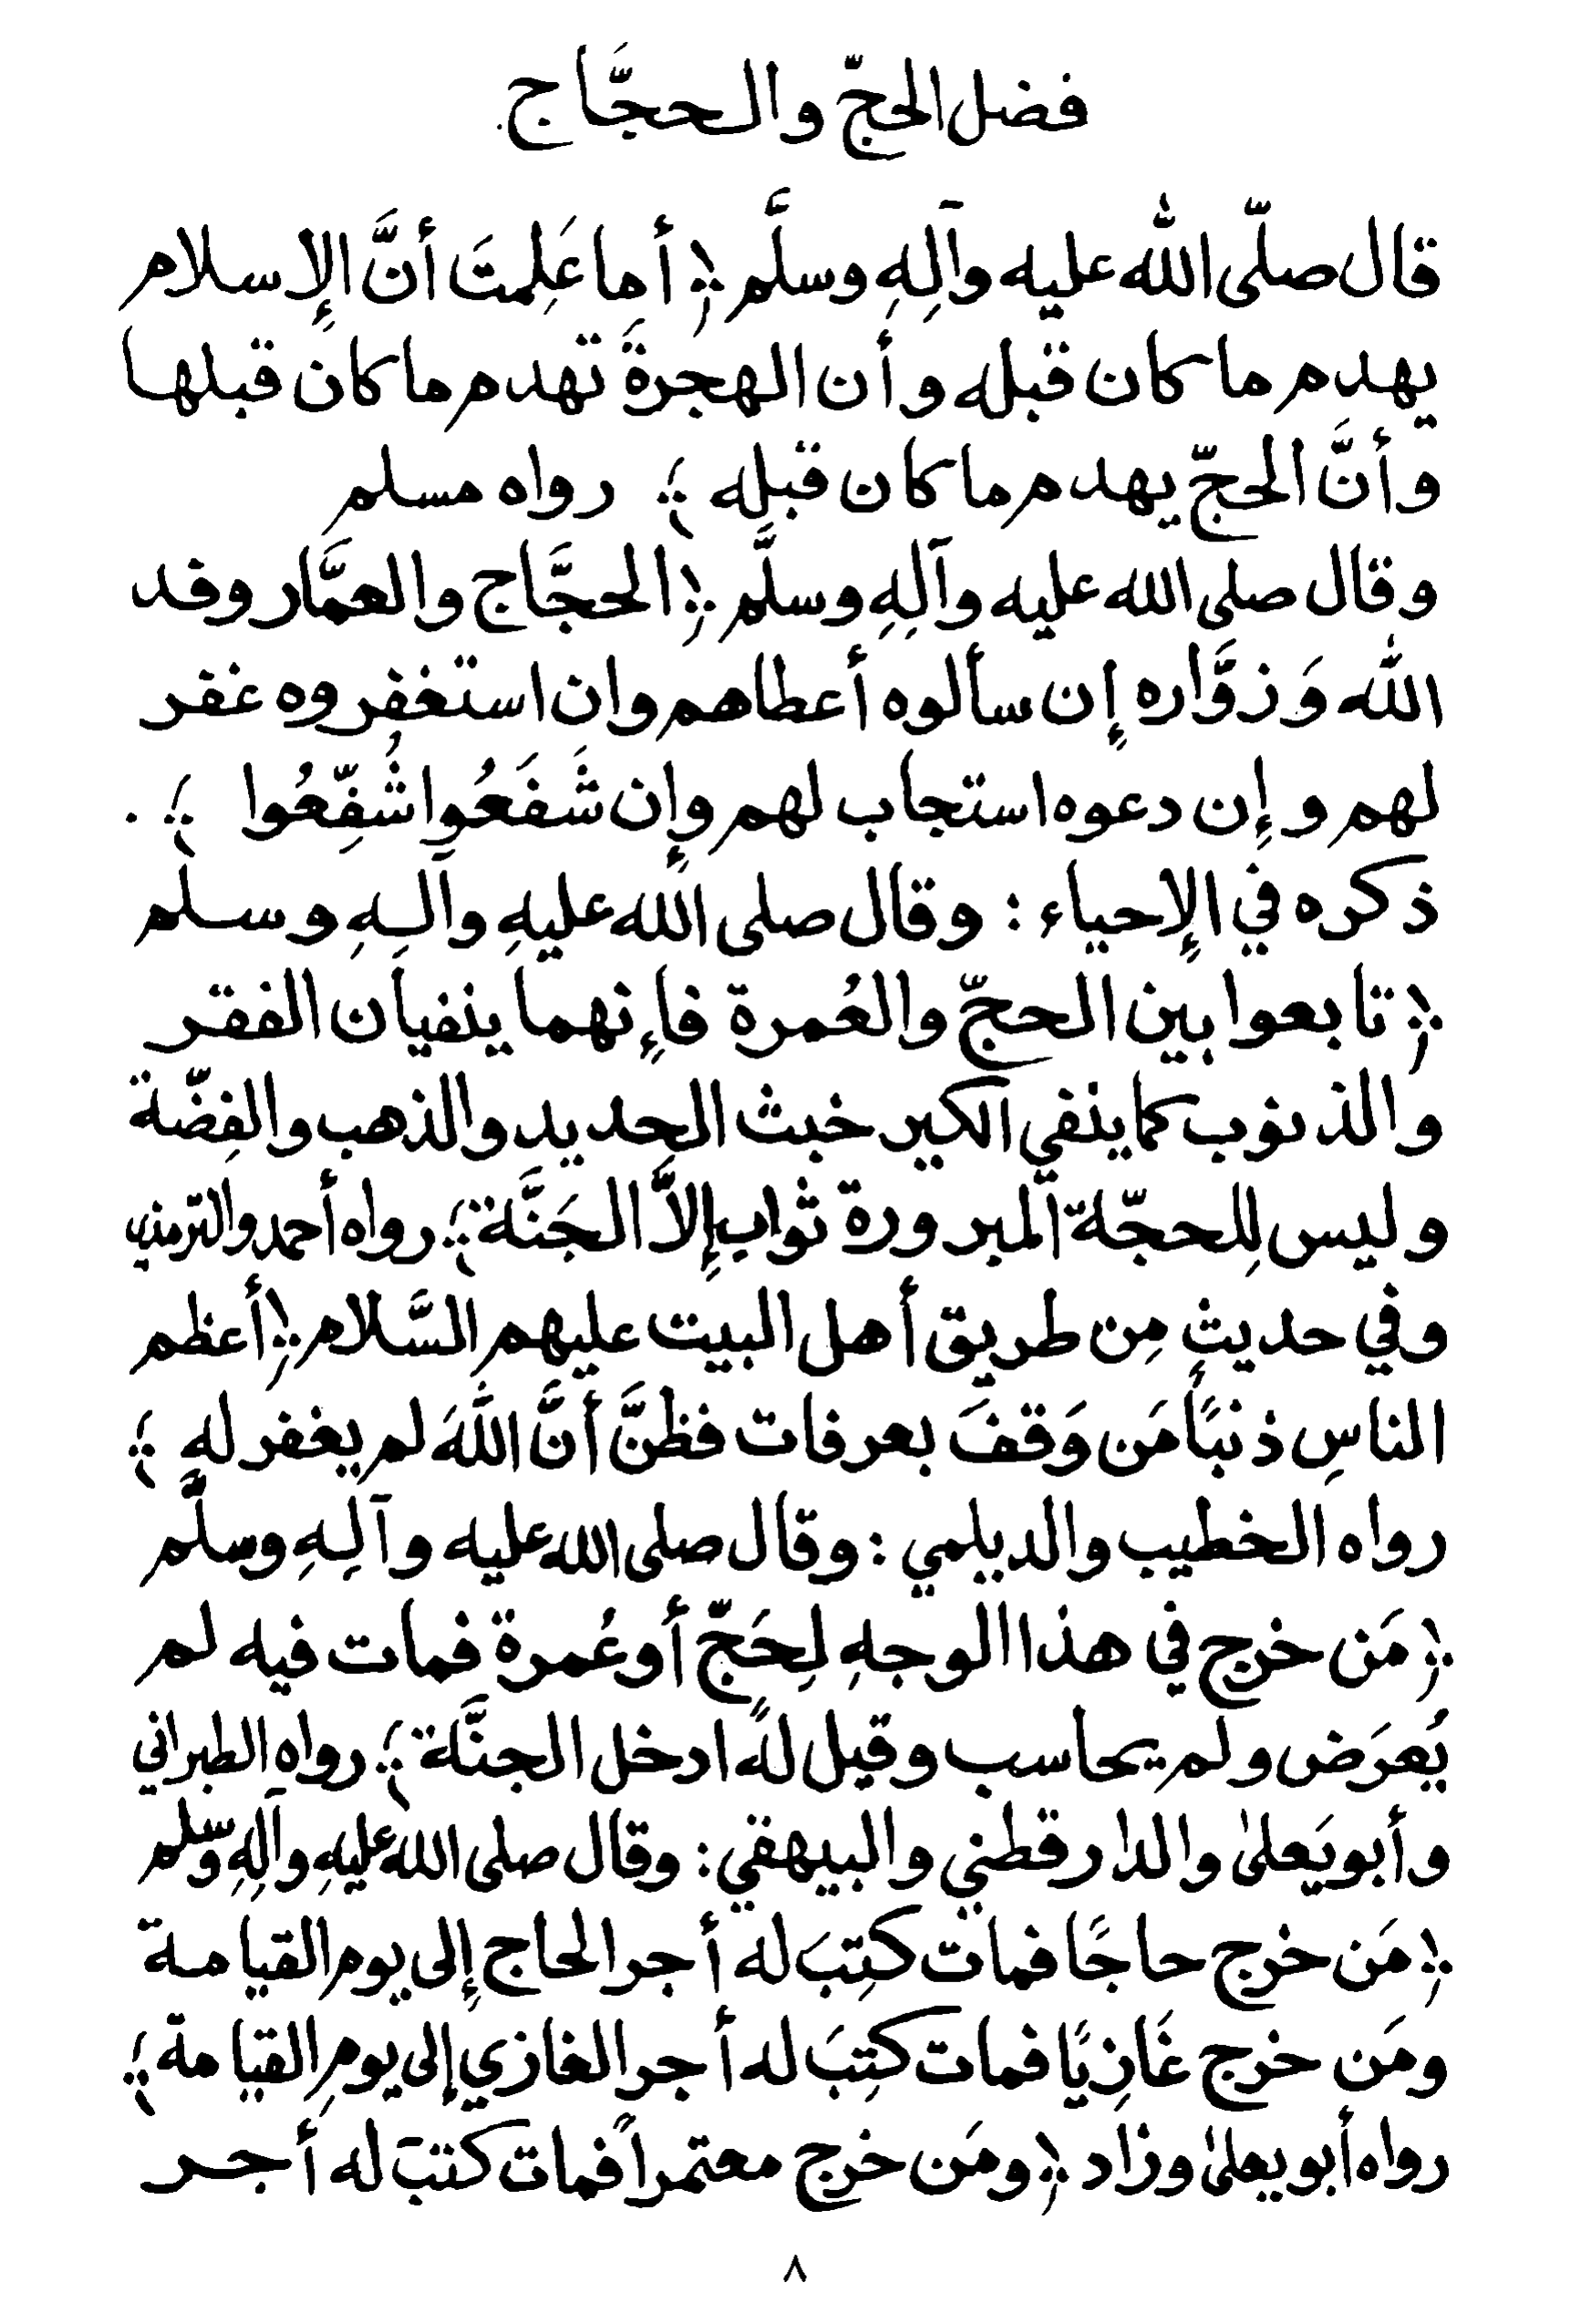 فضل الحجّ والحجَّاج
قال صلّى الله عليه وآلِهِ وسلَّم ﴿ أما عَلِمتَ أنَّ الإسلام
يهدم ما كان قبله وأن الهجرةَ تهدم ما كان قبلها
وأنَّ الحجّ يهدم ما كان قبله ﴾ رواه مسلم
وقال صلى الله عليه وآلِهِ وسلَّم ﴿ الحجَّاج والعمَّار وفد
الله وَزوَّاره إن سألوه أعطاهم وان استغفروه غفر
لهم وإن دعوه استجاب لهم وإن شَفَعُوا شُفِّعُوا ﴾ .
ذكره في الإحياء : وقال صلى الله عليهِ وآلهِ وسلم
﴿ تابعوا بين الحجّ والعُمرة فإنهما ينفيان الفقر
والذنوب كما ينفي الكير خبث الحديد والذهب والفِضّة
وليس لِلحجّة المبرورة ثواب إلاَّ الجَنَّة ﴾ رواه أحمد والترمذي
وفي حديثٍ مِن طريق أهل البيت عليهم السَّلام ﴿ أعظم
الناسِ ذنبًا مَن وَقفَ بعرفات فظنَّ أنَّ اللهَ لم يغفر له ﴾
رواه الخطيب والديلمي : وقال صلى الله عليه وآلِهِ وسلَّم
﴿ مَن خرج في هذا الوجهِ لِحَجّ أو عُمرة فمات فيه لم
يُعرَض ولم يحاسب وقيل لهُ ادخل الجنَّة ﴾ رواه الطبراني
وأبو يَعلىٰ والدارقطني والبيهقي : وقال صلى الله عليهِ وآلِهِ وسلم
﴿ مَن خرج حاجًا فمات كتِبَ له أجر الحاج إلى يوم القيامة
ومَن خرج غَازِيًا فمات كتِبَ له أجر الغازي إلى يومِ القيامة ﴾
رواه أبو يعلىٰ وزاد ﴿ ومَن خرج معتمراً فمات كتبَ له أجر
٨